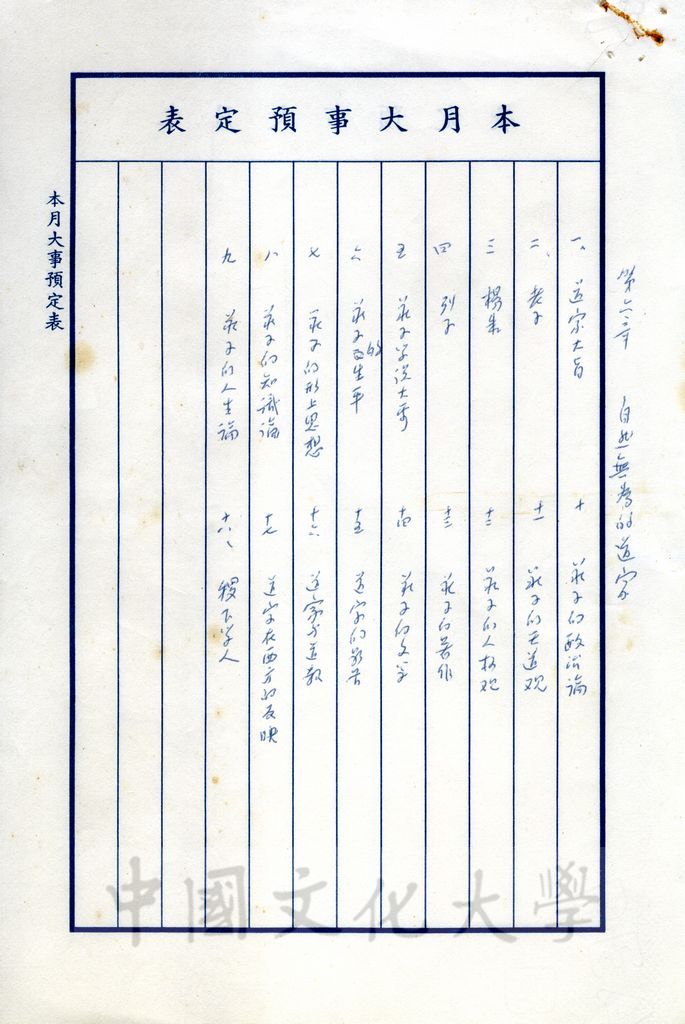 本月大事預定表
本月大事預定表
第六章 自然無為的道家
一、道家大旨
二、老子
三 楊朱
四 列子
五 莊子学說大要
六 莊子的生平
七 莊子的形上思想
八 莊子的知識論
九 莊子的人生論
十 莊子的政治論
十一 莊子的王道观
十二 莊子的人格观
十三 莊子的著作
十四 莊子的文学
十五 道家的影响
十六 道家与道教
十七 道家在西方的反映
十八、稷下学人
中國文化大學